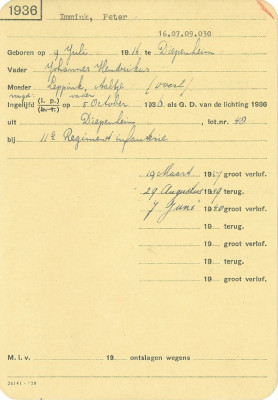 1936
Immink, Peter
16.07.09.030
Geboren op 9 Juli 1916 te Diepenheim
Vader Johannes Hendrikus
Moeder Leppink, Aaltje (voorl)
voogd: vader
Ingelijfd (l. p.) (b. t.) op 5 October 1936 als G. D. van de lichting 1936
uit Diepenheim, lot.nr 40
bij 11e Regiment infanterie
19 Maart 1937 groot verlof.
29 Augustus 1939 terug.
7 Juni 1940 groot verlof.
19 terug.
19 groot verlof.
19 terug.
19 groot verlof.
M. i. v. 19 ontslagen wegens
26141 - '39